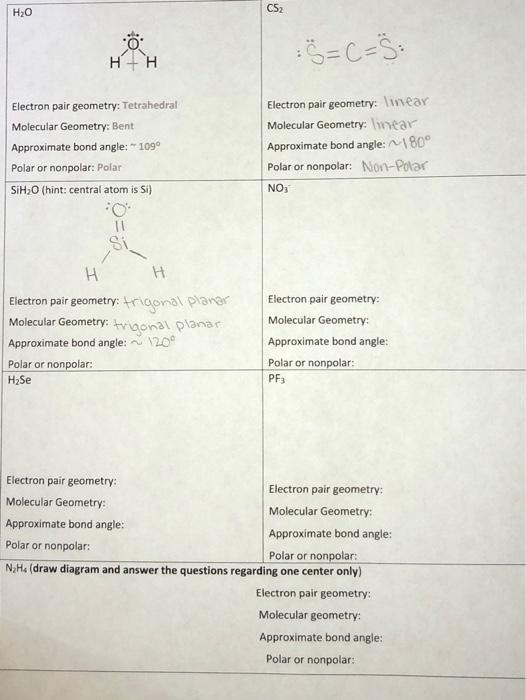 H₂O
H H
O
Electron pair geometry: Tetrahedral
Molecular Geometry: Bent
Approximate bond angle: ~ 109°
Polar or nonpolar: Polar
CS₂
:S=C=S:
Electron pair geometry: linear
Molecular Geometry: linear
Approximate bond angle: ~180°
Polar or nonpolar: Non-Polar
SiH₂O (hint: central atom is Si)
:O:
Si
H H
Electron pair geometry: trigonal planar
Molecular Geometry: trigonal planar
Approximate bond angle: ~ 120°
Polar or nonpolar:
NO₃⁻
Electron pair geometry:
Molecular Geometry:
Approximate bond angle:
Polar or nonpolar:
H₂Se
Electron pair geometry:
Molecular Geometry:
Approximate bond angle:
Polar or nonpolar:
PF₃
Electron pair geometry:
Molecular Geometry:
Approximate bond angle:
Polar or nonpolar:
N₂H₄ (draw diagram and answer the questions regarding one center only)
Electron pair geometry:
Molecular geometry:
Approximate bond angle:
Polar or nonpolar: